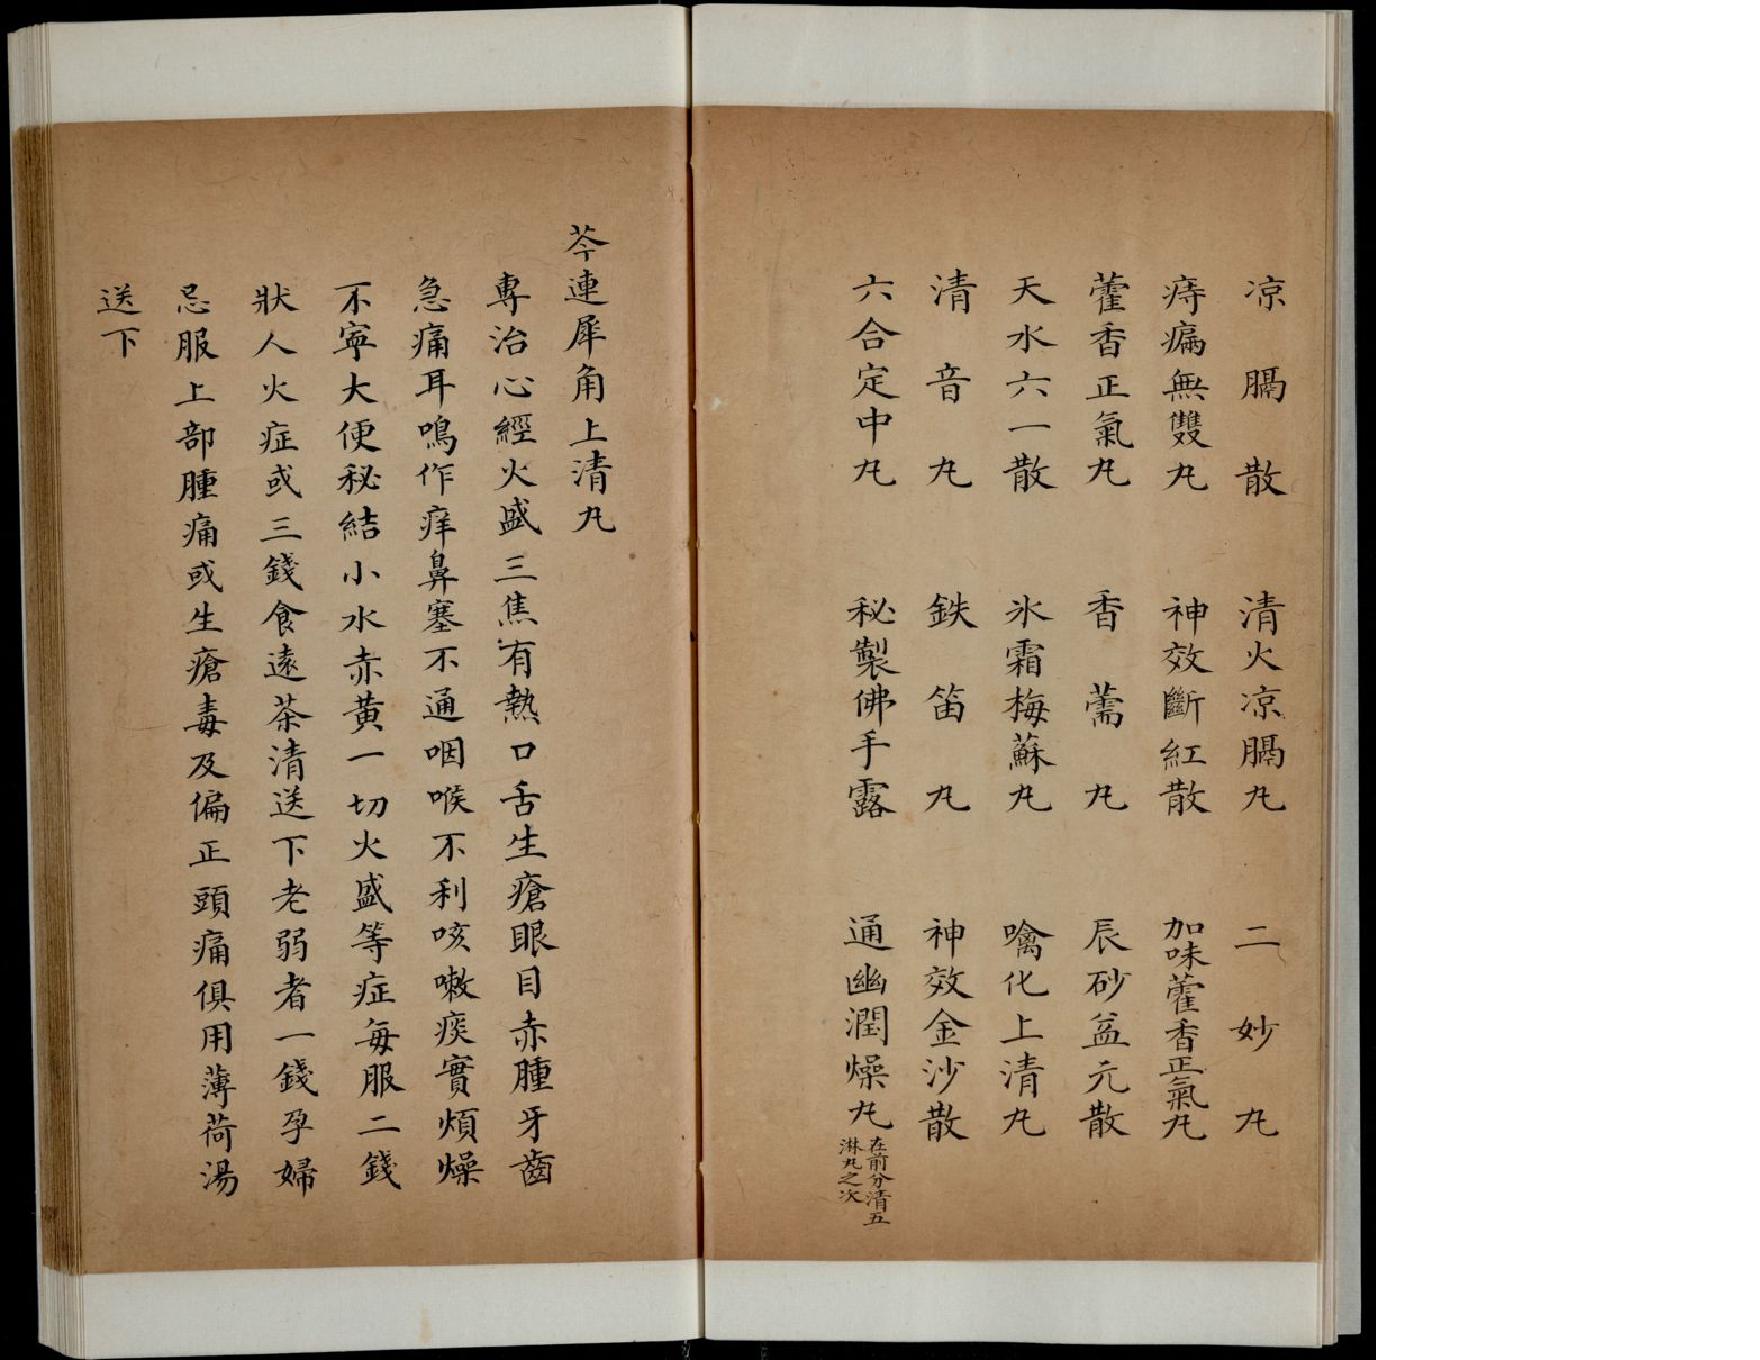 凉膈散　清火凉膈丸　二妙丸
痔漏無雙丸　神效斷紅散　加味藿香正氣丸
藿香正氣丸　香薷丸　辰砂益元散
天水六一散　氷霜梅蘇丸　噙化上清丸
清音丸　鉄笛丸　神效金沙散
六合定中丸　秘製佛手露　通幽潤燥丸在前分清五
淋丸之次
芩連犀角上清丸
專治心經火盛三焦有熱口舌生瘡眼目赤腫牙齒
急痛耳鳴作痒鼻塞不通咽喉不利咳嗽痰實煩燥
不寧大便秘結小水赤黃一切火盛等症每服二錢
狀人火症或三錢食遠茶清送下老弱者一錢孕婦
忌服上部腫痛或生瘡毒及偏正頭痛俱用薄荷湯
送下